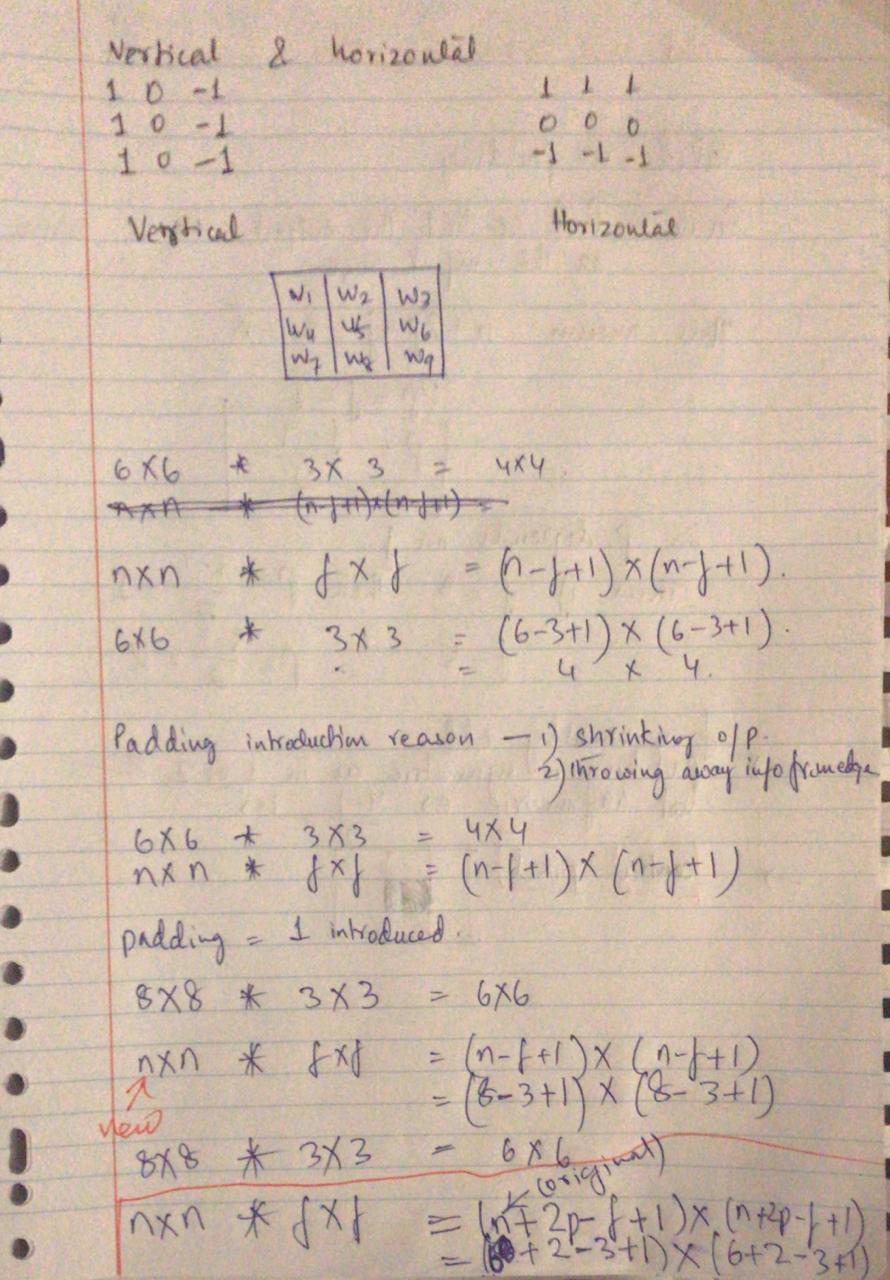 Vertical & horizontal
1 0 -1 1 1 1
1 0 -1 0 0 0
1 0 -1 -1 -1 -1
Vertical Horizontal
W1 W2 W3
W4 W5 W6
W7 W8 W9
6x6 * 3x3 = 4x4.
nxn * (n-f+1)x(n-f+1) =
nxn * fxf = (n-f+1)x(n-f+1).
6x6 * 3x3 = (6-3+1)x(6-3+1).
= 4 x 4.
Padding introduction reason - 1) shrinking o/p.
2) throwing away info from edge
6x6 * 3x3 = 4x4
nxn * fxf = (n-f+1)x(n-f+1)
padding = 1 introduced.
8x8 * 3x3 = 6x6
nxn * fxf = (n-f+1)x(n-f+1)
= (8-3+1)x(8-3+1)
new
8x8 * 3x3 = 6x6
(original)
nxn * fxf = (n+2p-f+1)x(n+2p-f+1)
= (6+2-3+1)x(6+2-3+1)